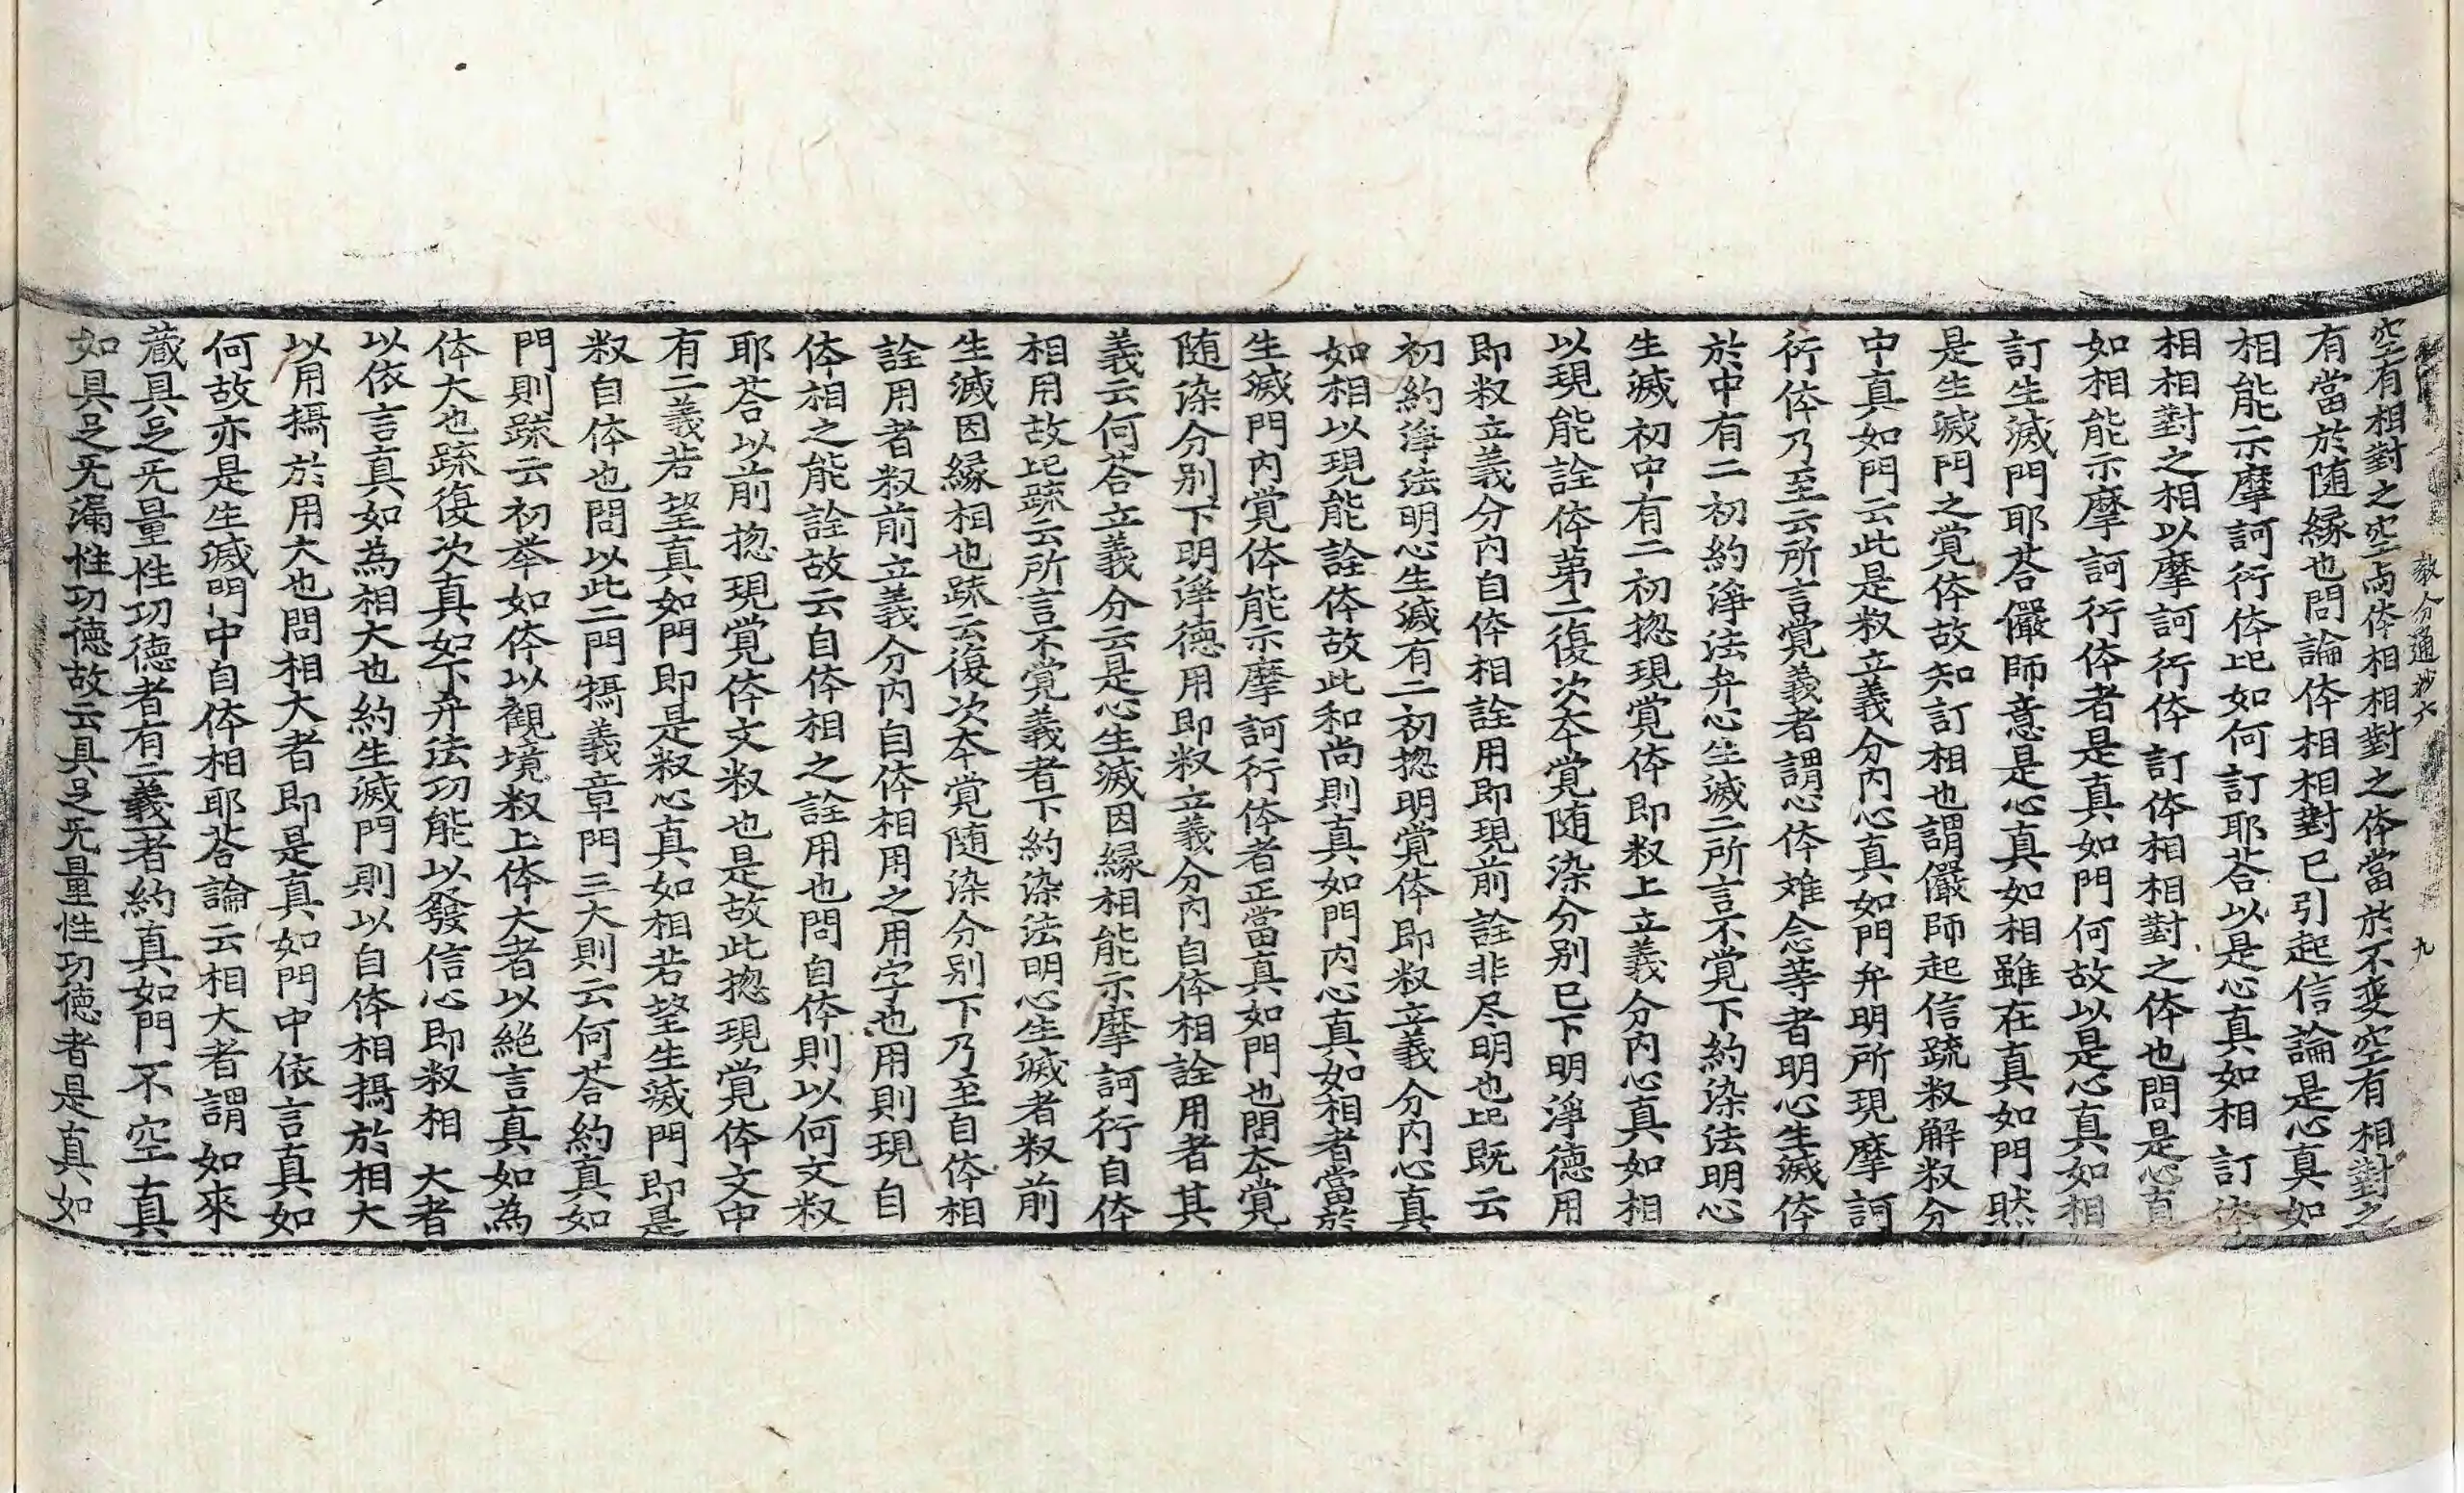 教分通抄六 九
空有相對之空両体相相對之体當於不変空有相對之
有當於随縁也問論体相相對已引起信論是心真如
相能示摩訶衍体比如何訂耶荅以是心真如相訂体
相相對之相以摩訶衍体訂体相相對之体也問是心真
如相能示摩訶衍体者是真如門何故以是心真如相
訂生滅門耶荅儼師意是心真如相雖在真如門然
是生滅門之覚体故知訂相也謂儼師起信䟽釈解釈分
中真如門云此是釈立義分内心真如門弁明所現摩訶
衍体乃至云所言覚義者謂心体难念等者明心生滅体
於中有二初約淨法弁心生滅二所言不覚下約染法明心
生滅初中有二初揔現覚体即釈上立義分内心真如相
以現能詮体苐二復次夲覚随染分别已下明淨德用
即釈立義分内自体相詮用即現前詮非尽明也比既云
初約淨法明心生滅有二初揔明覚体即釈立義分内心真
如相以現能詮体故此和尚則真如門内心真如相者當於
生滅門内覚体能示摩訶衍体者正當真如門也問夲覚
随染分别下明淨德用即釈立義分内自体相詮用者其
義云何荅立義分云是心生滅因緣相能示摩訶衍自体
相用故比䟽云所言不覚義者下約染法明心生滅者釈前
生滅因緣相也䟽云復次夲覚随染分别下乃至自体相
詮用者釈前立義分内自体相用之用字也用則現自
体相之能詮故云自体相之詮用也問自体則以何文釈
耶荅以前揔現覚体文釈也是故此揔現覚体文中
有二義若望真如門即是釈心真如相若望生滅門即是
釈自体也問以此二門攝義章門三大則云何荅約真如
門則䟽云初举如体以觀境釈上体大者以絕言真如為
体大也䟽復次真如下弁法功能以發信心即釈相大者
以依言真如為相大也約生滅門則以自体相攝於相大
以用攝於用大也問相大者即是真如門中依言真如
何故亦是生滅門中自体相耶荅論云相大者謂如來
蔵具足无量性功德者有二義一者約真如門不空真
如具足无漏性功德故云具足无量性功德者是真如